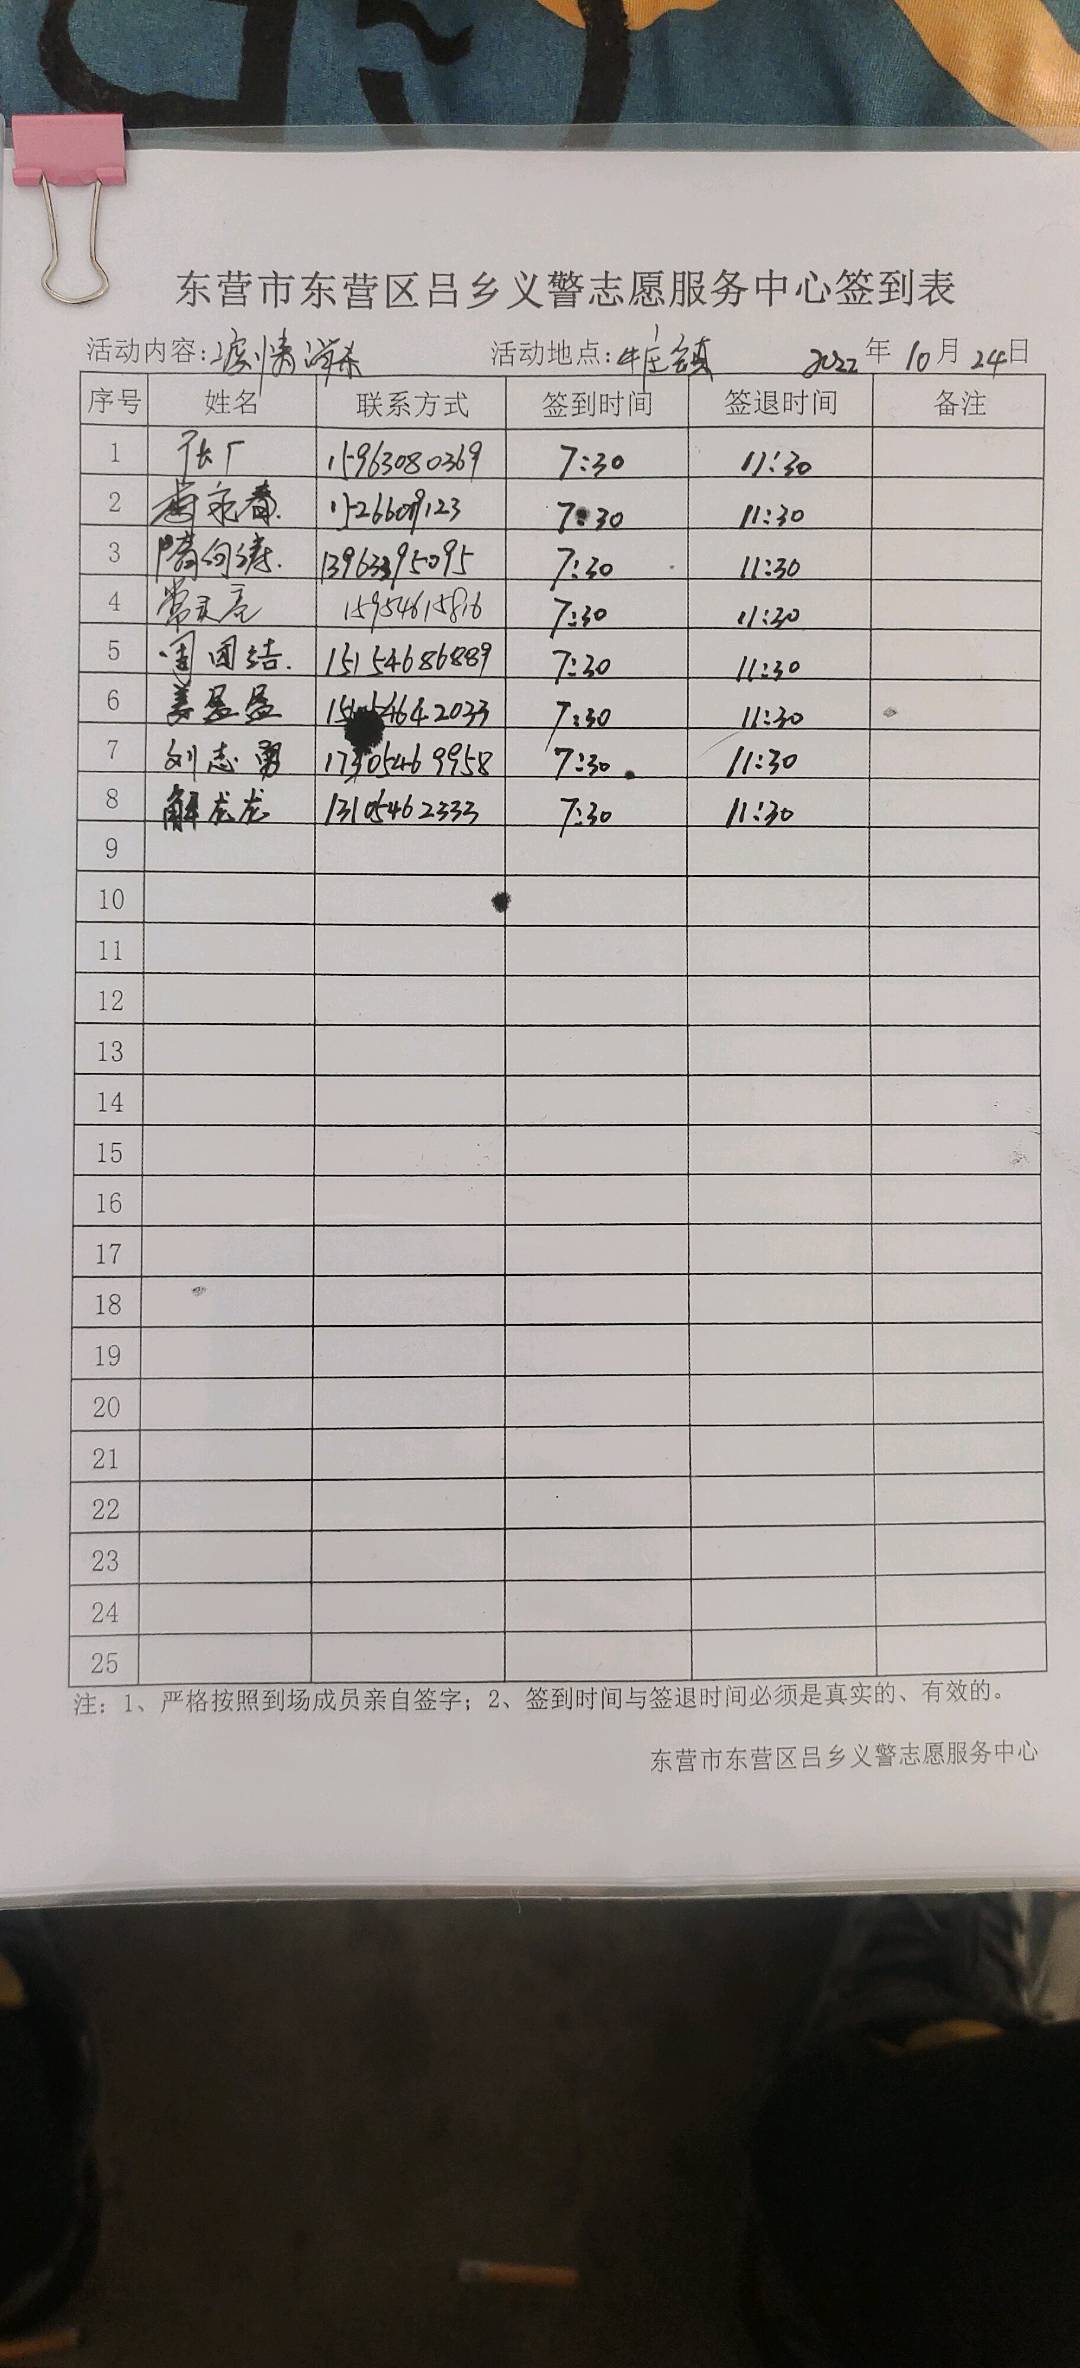 东营市东营区吕乡义警志愿服务中心签到表
活动内容: 活动地点:牛庄镇 2022年10月24日
序号 姓名 联系方式 签到时间 签退时间 备注
1 张广 15963080369 7:30 11:30
2 7:30 11:30
3 7:30 11:30
4 15954615816 7:30 11:30
5 周团结. 15154686889 7:30 11:30
6 姜盈盈 7:30 11:30
7 刘志勇 17305469958 7:30 11:30
8 解龙龙 13105462333 7:30 11:30
9
10
11
12
13
14
15
16
17
18
19
20
21
22
23
24
25
注：1、严格按照到场成员亲自签字；2、签到时间与签退时间必须是真实的、有效的。
东营市东营区吕乡义警志愿服务中心